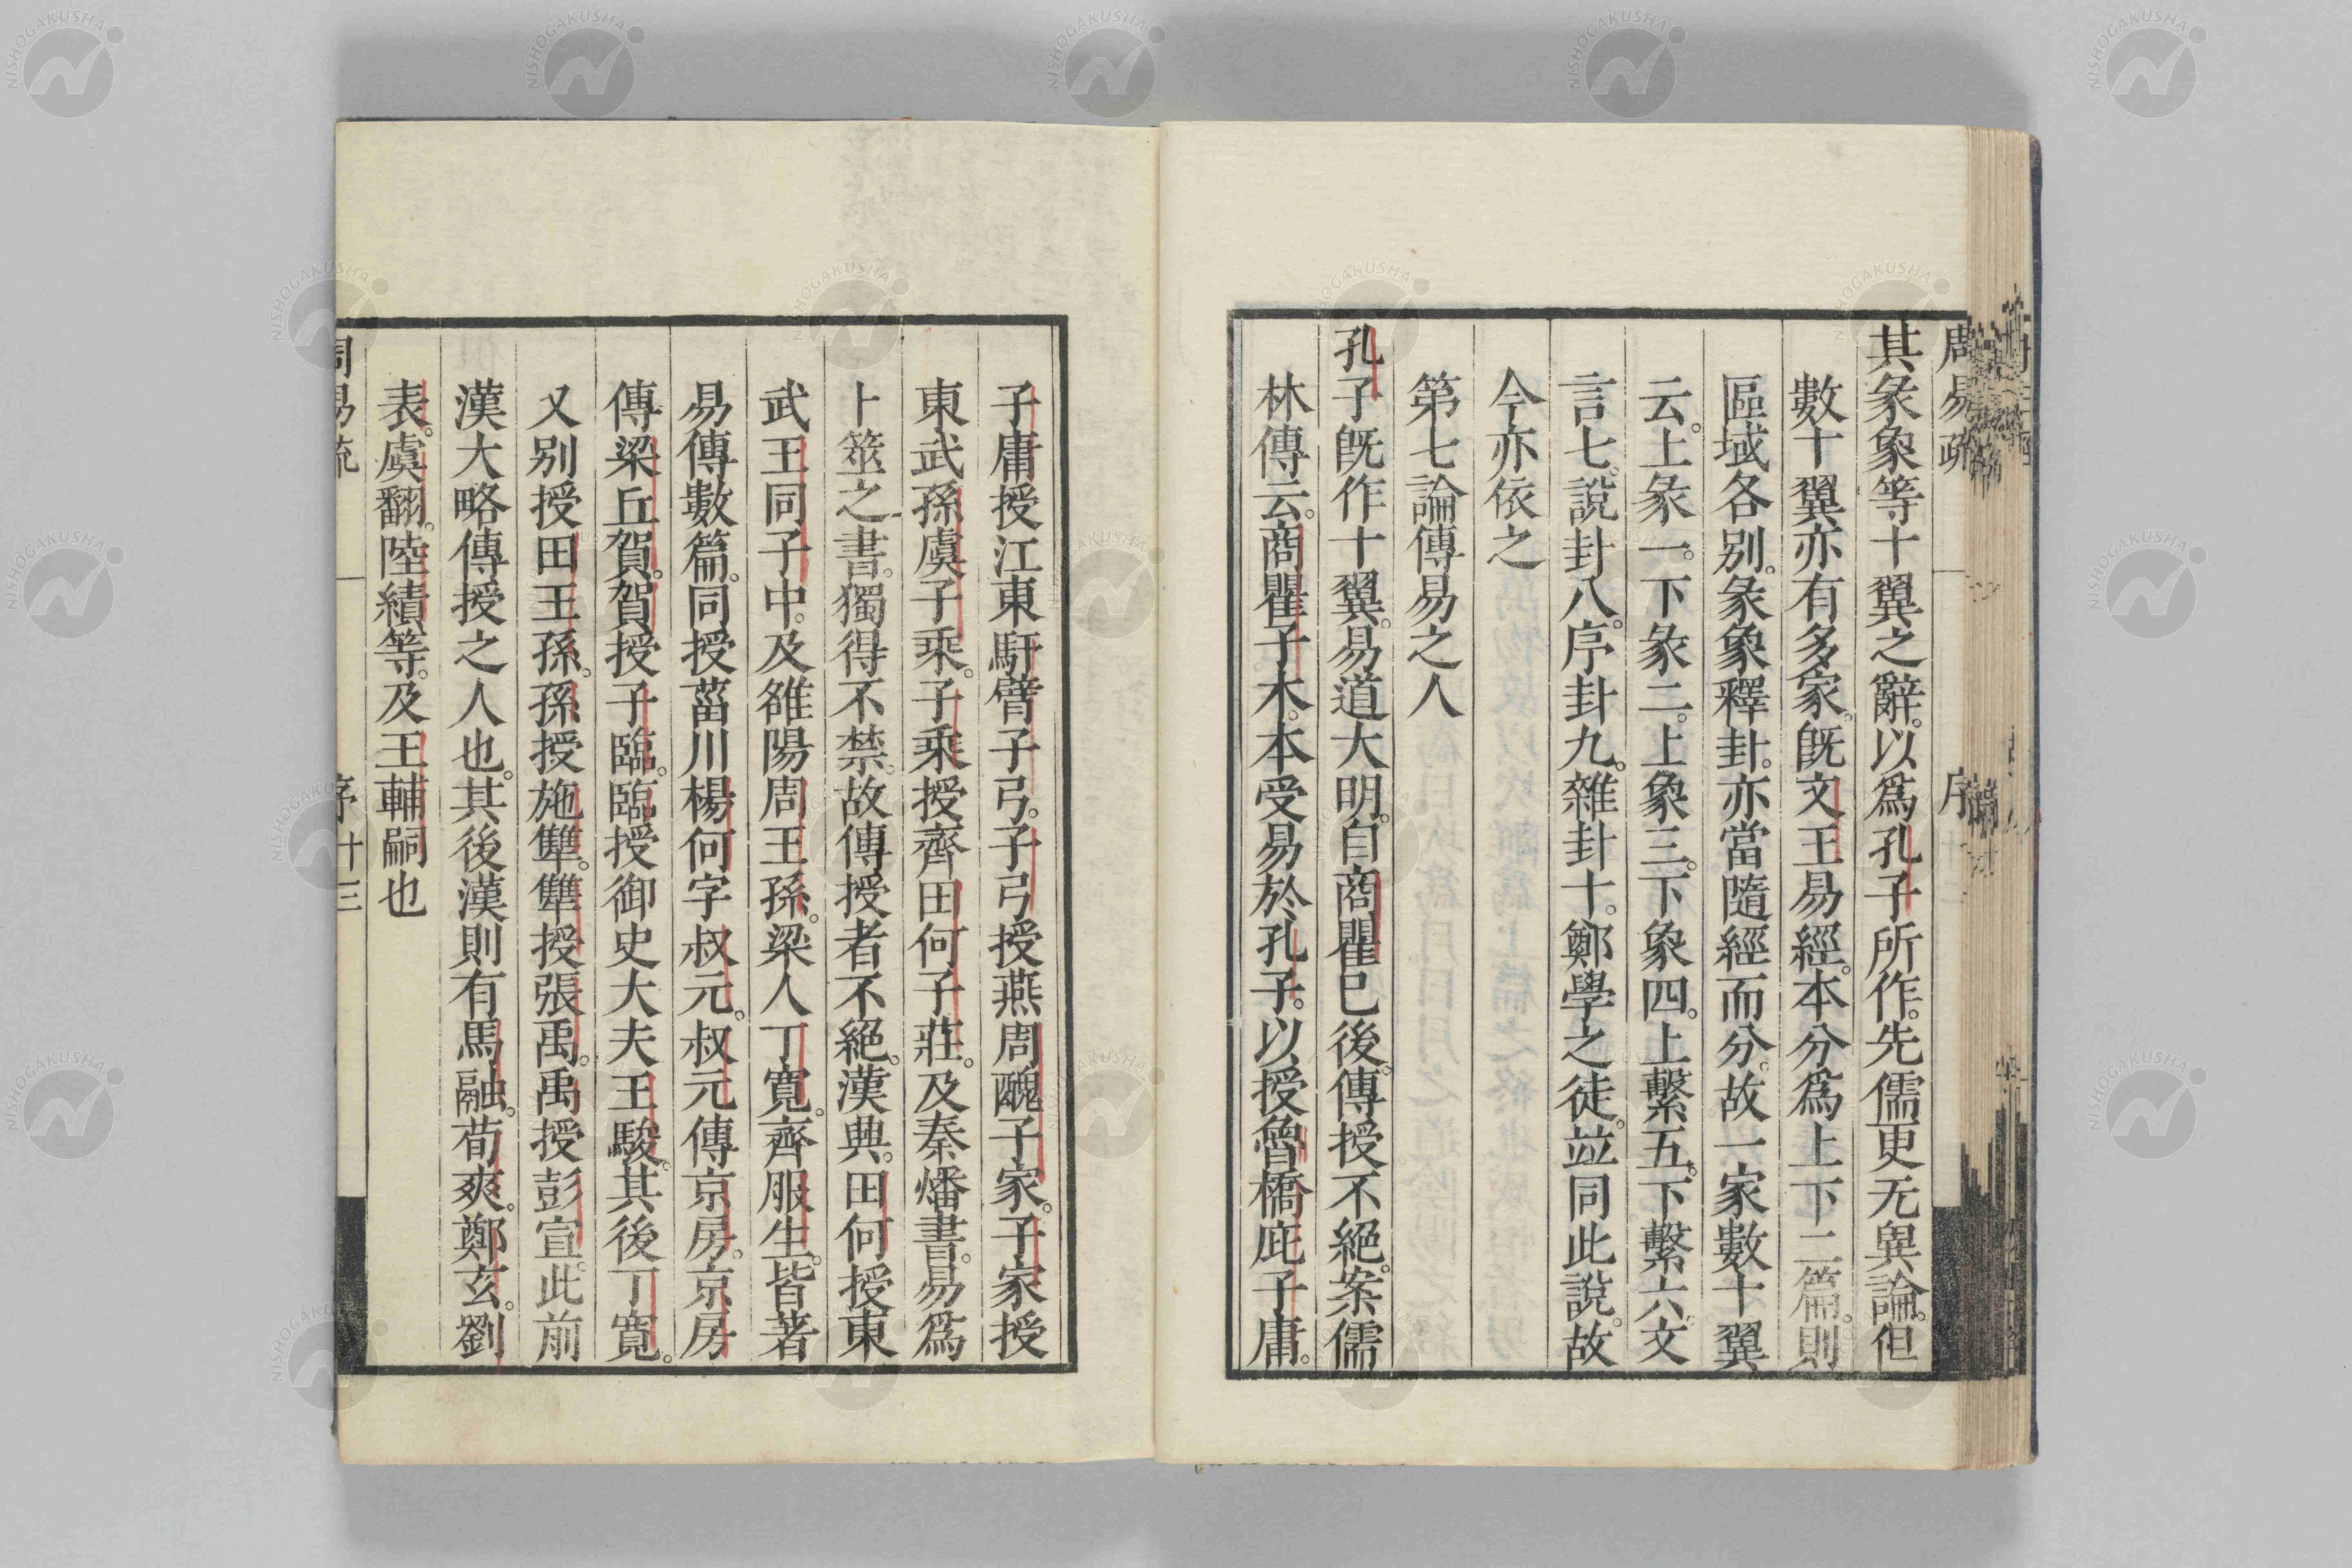 周易疏 序
其彖象等十翼之辭。以爲孔子所作。先儒更无異論。但
數十翼亦有多家。既文王易經。本分爲上下二篇。則
區域各別。彖象釋卦。亦當隨經而分。故一家數十翼
云。上彖一。下彖二。上象三。下象四。上繫五。下繫六。文
言七。說卦八。序卦九。雜卦十。鄭學之徒。並同此說。故
今亦依之
第七論傳易之人
孔子既作十翼。易道大明。自商瞿已後。傳授不絕。案儒
林傳云。商瞿子木。本受易於孔子。以授魯橋庇子庸。
子庸授江東馯臂子弓。子弓授燕周醜子家。子家授
東武孫虞子乘。子乘授齊田何子莊。及秦燔書。易爲
卜筮之書。獨得不禁。故傳授者不絕。漢興。田何授東
武王同子中。及雒陽周王孫。梁人丁寬。齊服生。皆著
易傳數篇。同授菑川楊何字叔元。叔元傳京房。京房
傳梁丘賀。賀授子臨。臨授御史大夫王駿。其後丁寬。
又別授田王孫。孫授施讐。讐授張禹。禹授彭宣。此前
漢大略傳授之人也。其後漢則有馬融。荀爽。鄭玄。劉
表。虞翻。陸績等。及王輔嗣也
周易疏 序 十三
NISHOGAKUSHA